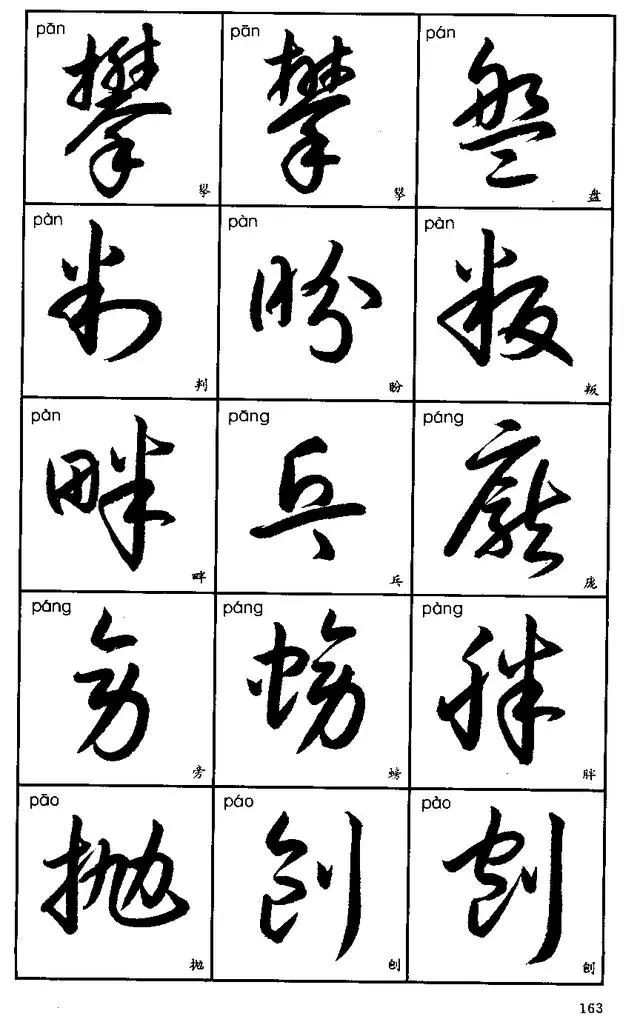 pǎn pān pán
攀 攀 盘
攀 攀 盘
pàn pàn pàn
判 盼 叛
判 盼 叛
pàn pāng páng
畔 乓 龐
畔 乓 庞
páng páng pàng
旁 螃 胖
旁 螃 胖
pāo páo pào
抛 刨 刨
抛 刨 刨
163